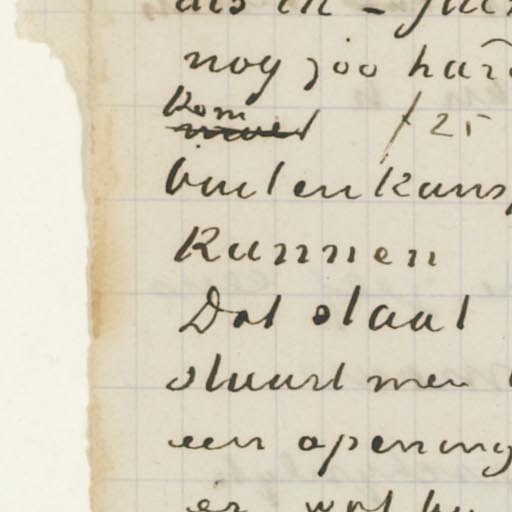 als in -
nog zoo hard
kom
moet f 25
buitenkans
Kunnen
Dat slaat
stuurt men
een opening
er wat